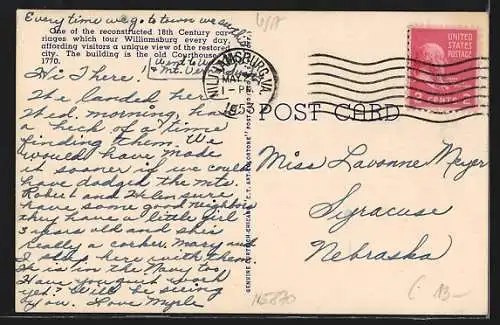 Every time we go to town we
One of the reconstructed 18th Century car-
riages which tour Williamsburg every day,
affording visitors a unique view of the restored
city. The building is the old Courthouse
1770.
Went to
& Mt. Ver
Hi There!
We landed here
Wed. morning, had
a heck of a time
finding them. We
would have made
it sooner if we could
have dodged the mts.
Robert and Helen sure
have some good neighbors
they have a little girl
3 years old and she's
really a corker. Mary and
I stay here with them.
He is in the Navy too.
Have you quit work
yet? Will be seeing
you. Love Myrle
WILLIAMSBURG, VA.
1-PM
1953
UNITED STATES
POSTAGE
2 CENTS 2
POST CARD
GENUINE CURTEICH-CHICAGO "C.T. ART-COLORTONE" POST CARD
Miss Lavonne Meyer
Syracuse
Nebraska
13-